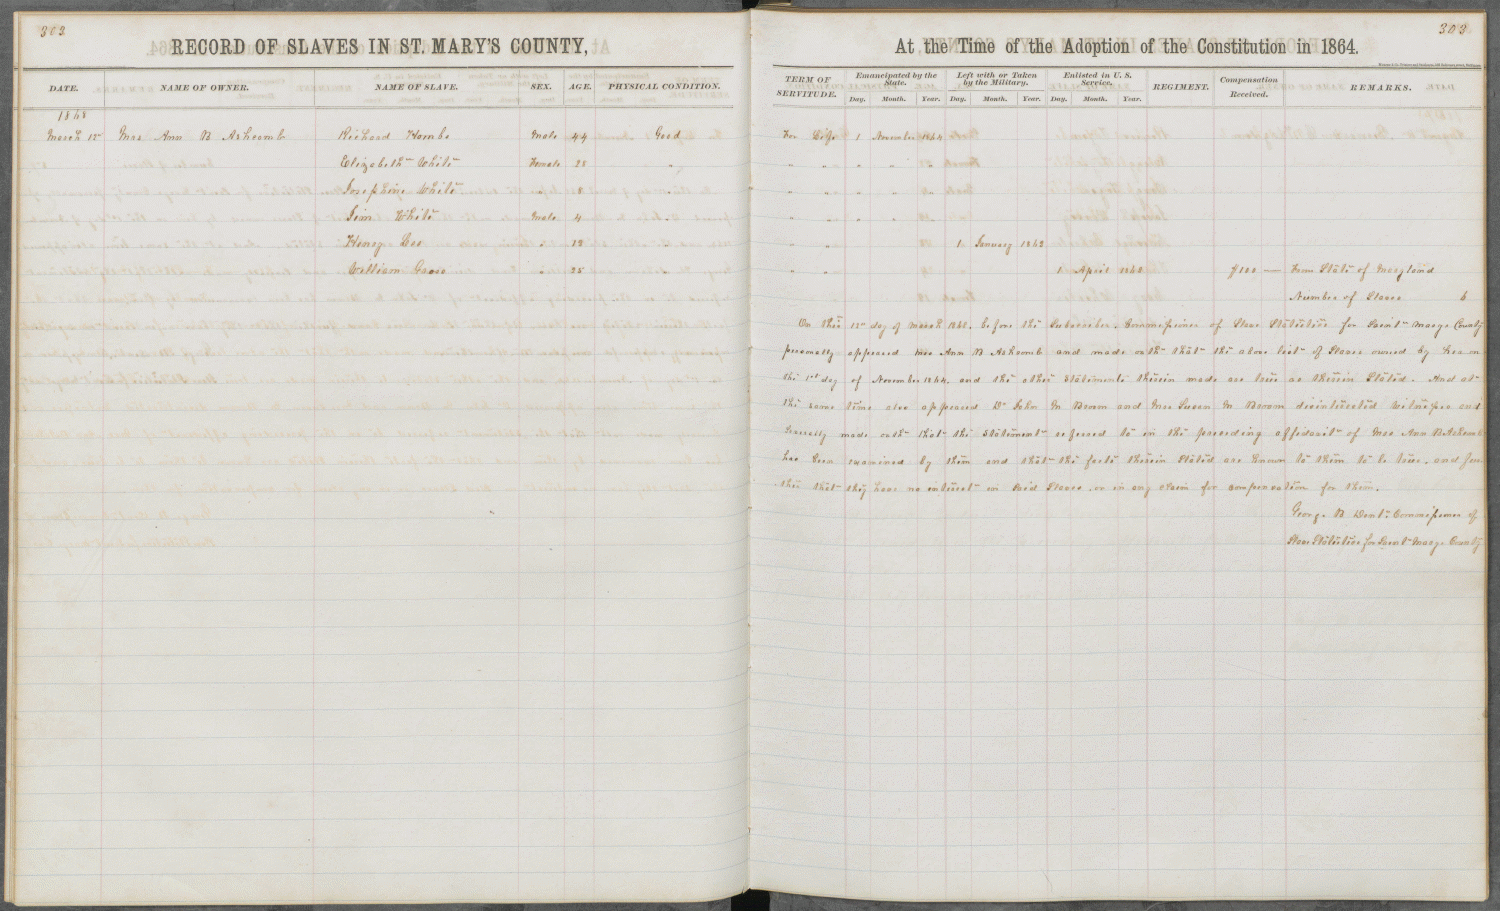 303
303
RECORD OF SLAVES IN ST. MARY'S COUNTY,
At the Time of the Adoption of the Constitution in 1864.
DATE. NAME OF OWNER. NAME OF SLAVE. SEX. AGE. PHYSICAL CONDITION.
TERM OF SERVITUDE. Emancipated by the State. Day. Month. Year. Left with or Taken by the Military. Day. Month. Year. Enlisted in U. S. Service. Day. Month. Year. REGIMENT. Compensation Received. REMARKS.
1868
March 12th Mrs Ann B Ashcomb Richard Male 44 Good For Life 1 November 1864
Elizabeth White Female 25 " " " " " "
Josephine White " " " " " " "
Jim White Male 4 " " " " " "
Henry Lee " 19 " " " 1 January 1863
William " 25 " " 1 April 1864 $100 — From State of Maryland
Number of Slaves 6
On this 12th day of March 1868, before the Subscriber, Commissioner of Slave Statistics for Saint Marys County
personally appeared Mrs Ann B Ashcomb and made oath that the above list of Slaves owned by her on
the 1st day of November 1864, and the other statements therein made are true as therein stated. And at
the same time also appeared Dr John M Broom and Mrs Susan M Broom disinterested witnesses and
severally made oath that the statement referred to in the preceeding affidavit of Mrs Ann B Ashcomb
has been examined by them and that the facts therein stated are known to them to be true, and fur
ther that they have no interest in said Slaves, or in any claim for compensation for them.
George B Dent: Commissioner of
Slave Statistics for Saint Marys County